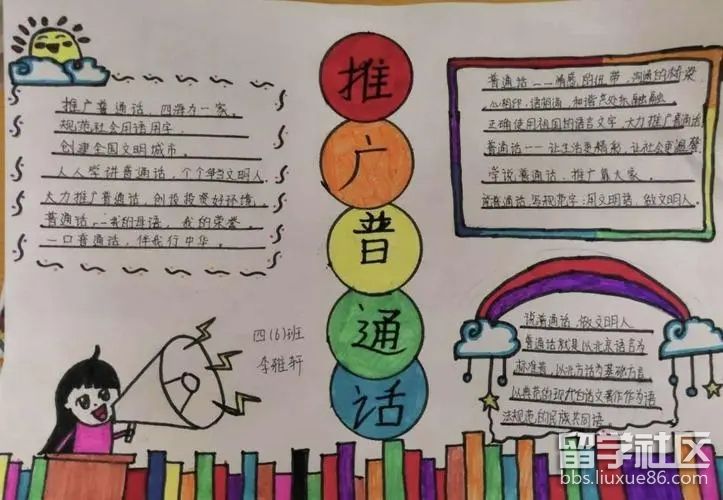 推广普通话
推广普通话，四海为一家。
规范社会用语用字，
创建全国文明城市。
人人学讲普通话，个个争当文明人。
大力推广普通话，创设投资好环境。
普通话——我的母语，我的荣誉。
一口普通话，伴我行中华。
四(6)班
李雅轩
普通话——情感的纽带，沟通的桥梁
心相印，语相通，和谐共处乐融融
正确使用祖国的语言文字，大力推广普通话
普通话——让生活更精彩，让社会更温馨
学说普通话，推广靠大家。
普通话，写规范字；用文明语，做文明人。
说普通话，做文明人
普通话就是以北京语言为
标准音，以北方话为基础方言
以典范的现代白话文著作作为语
法规范的民族共同语。
留学社区
bbs.liuxue86.com